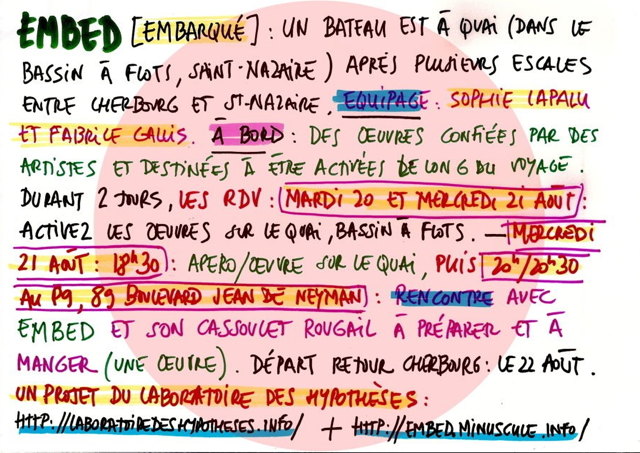 EMBED [EMBARQUÉ] : UN BATEAU EST À QUAI (DANS LE
BASSIN À FLOTS, SAINT-NAZAIRE) APRÉS PLUSIEURS ESCALES
ENTRE CHERBOURG ET ST-NAZAIRE. EQUIPAGE : SOPHIE LAPALU
ET FABRICE GALLIS. À BORD : DES ŒUVRES CONFIÉES PAR DES
ARTISTES ET DESTINÉES À ÊTRE ACTIVÉES LE LONG DU VOYAGE.
DURANT 2 JOURS, LES RDV : MARDI 20 ET MERCREDI 21 AOÛT :
ACTIVEZ LES ŒUVRES SUR LE QUAI, BASSIN À FLOTS. — MERCREDI
21 AOÛT : 18H30 : APERO/ŒUVRE SUR LE QUAI, PUIS 20H/20H30
AU P9, 89 BOULEVARD JEAN DE NEYMAN : RENCONTRE AVEC
EMBED ET SON CASSOULET ROUGAIL À PRÉPARER ET À
MANGER (UNE ŒUVRE). DÉPART RETOUR CHERBOURG : LE 22 AOÛT.
UN PROJET DU LABORATOIRE DES HYPOTHÈSES :
HTTP://LABORATOIREDESHYPOTHESES.INFO/ + HTTP://EMBED.MINUSCULE.INFO/